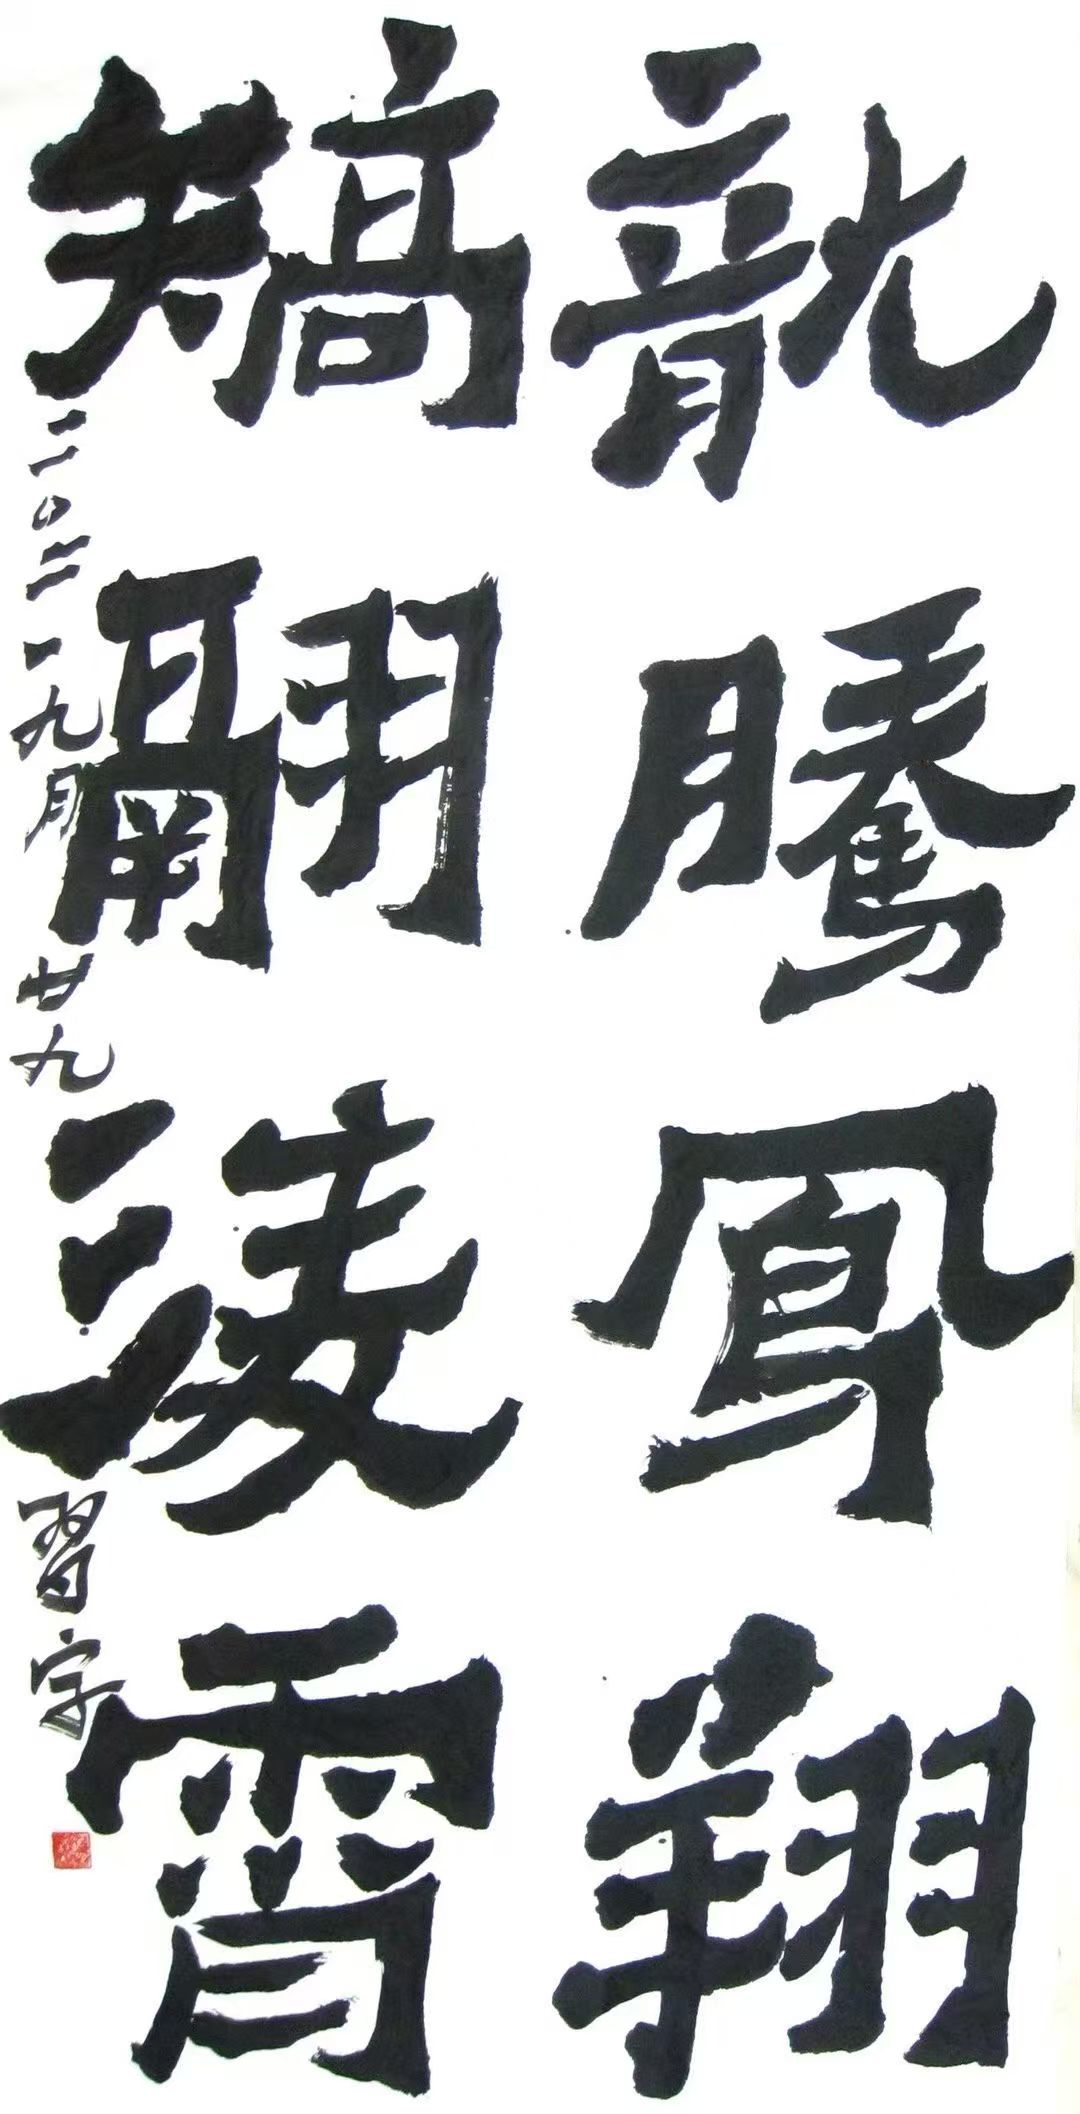 龍騰鳳翔
矯翮淩霄
二〇二一九月廿九習字